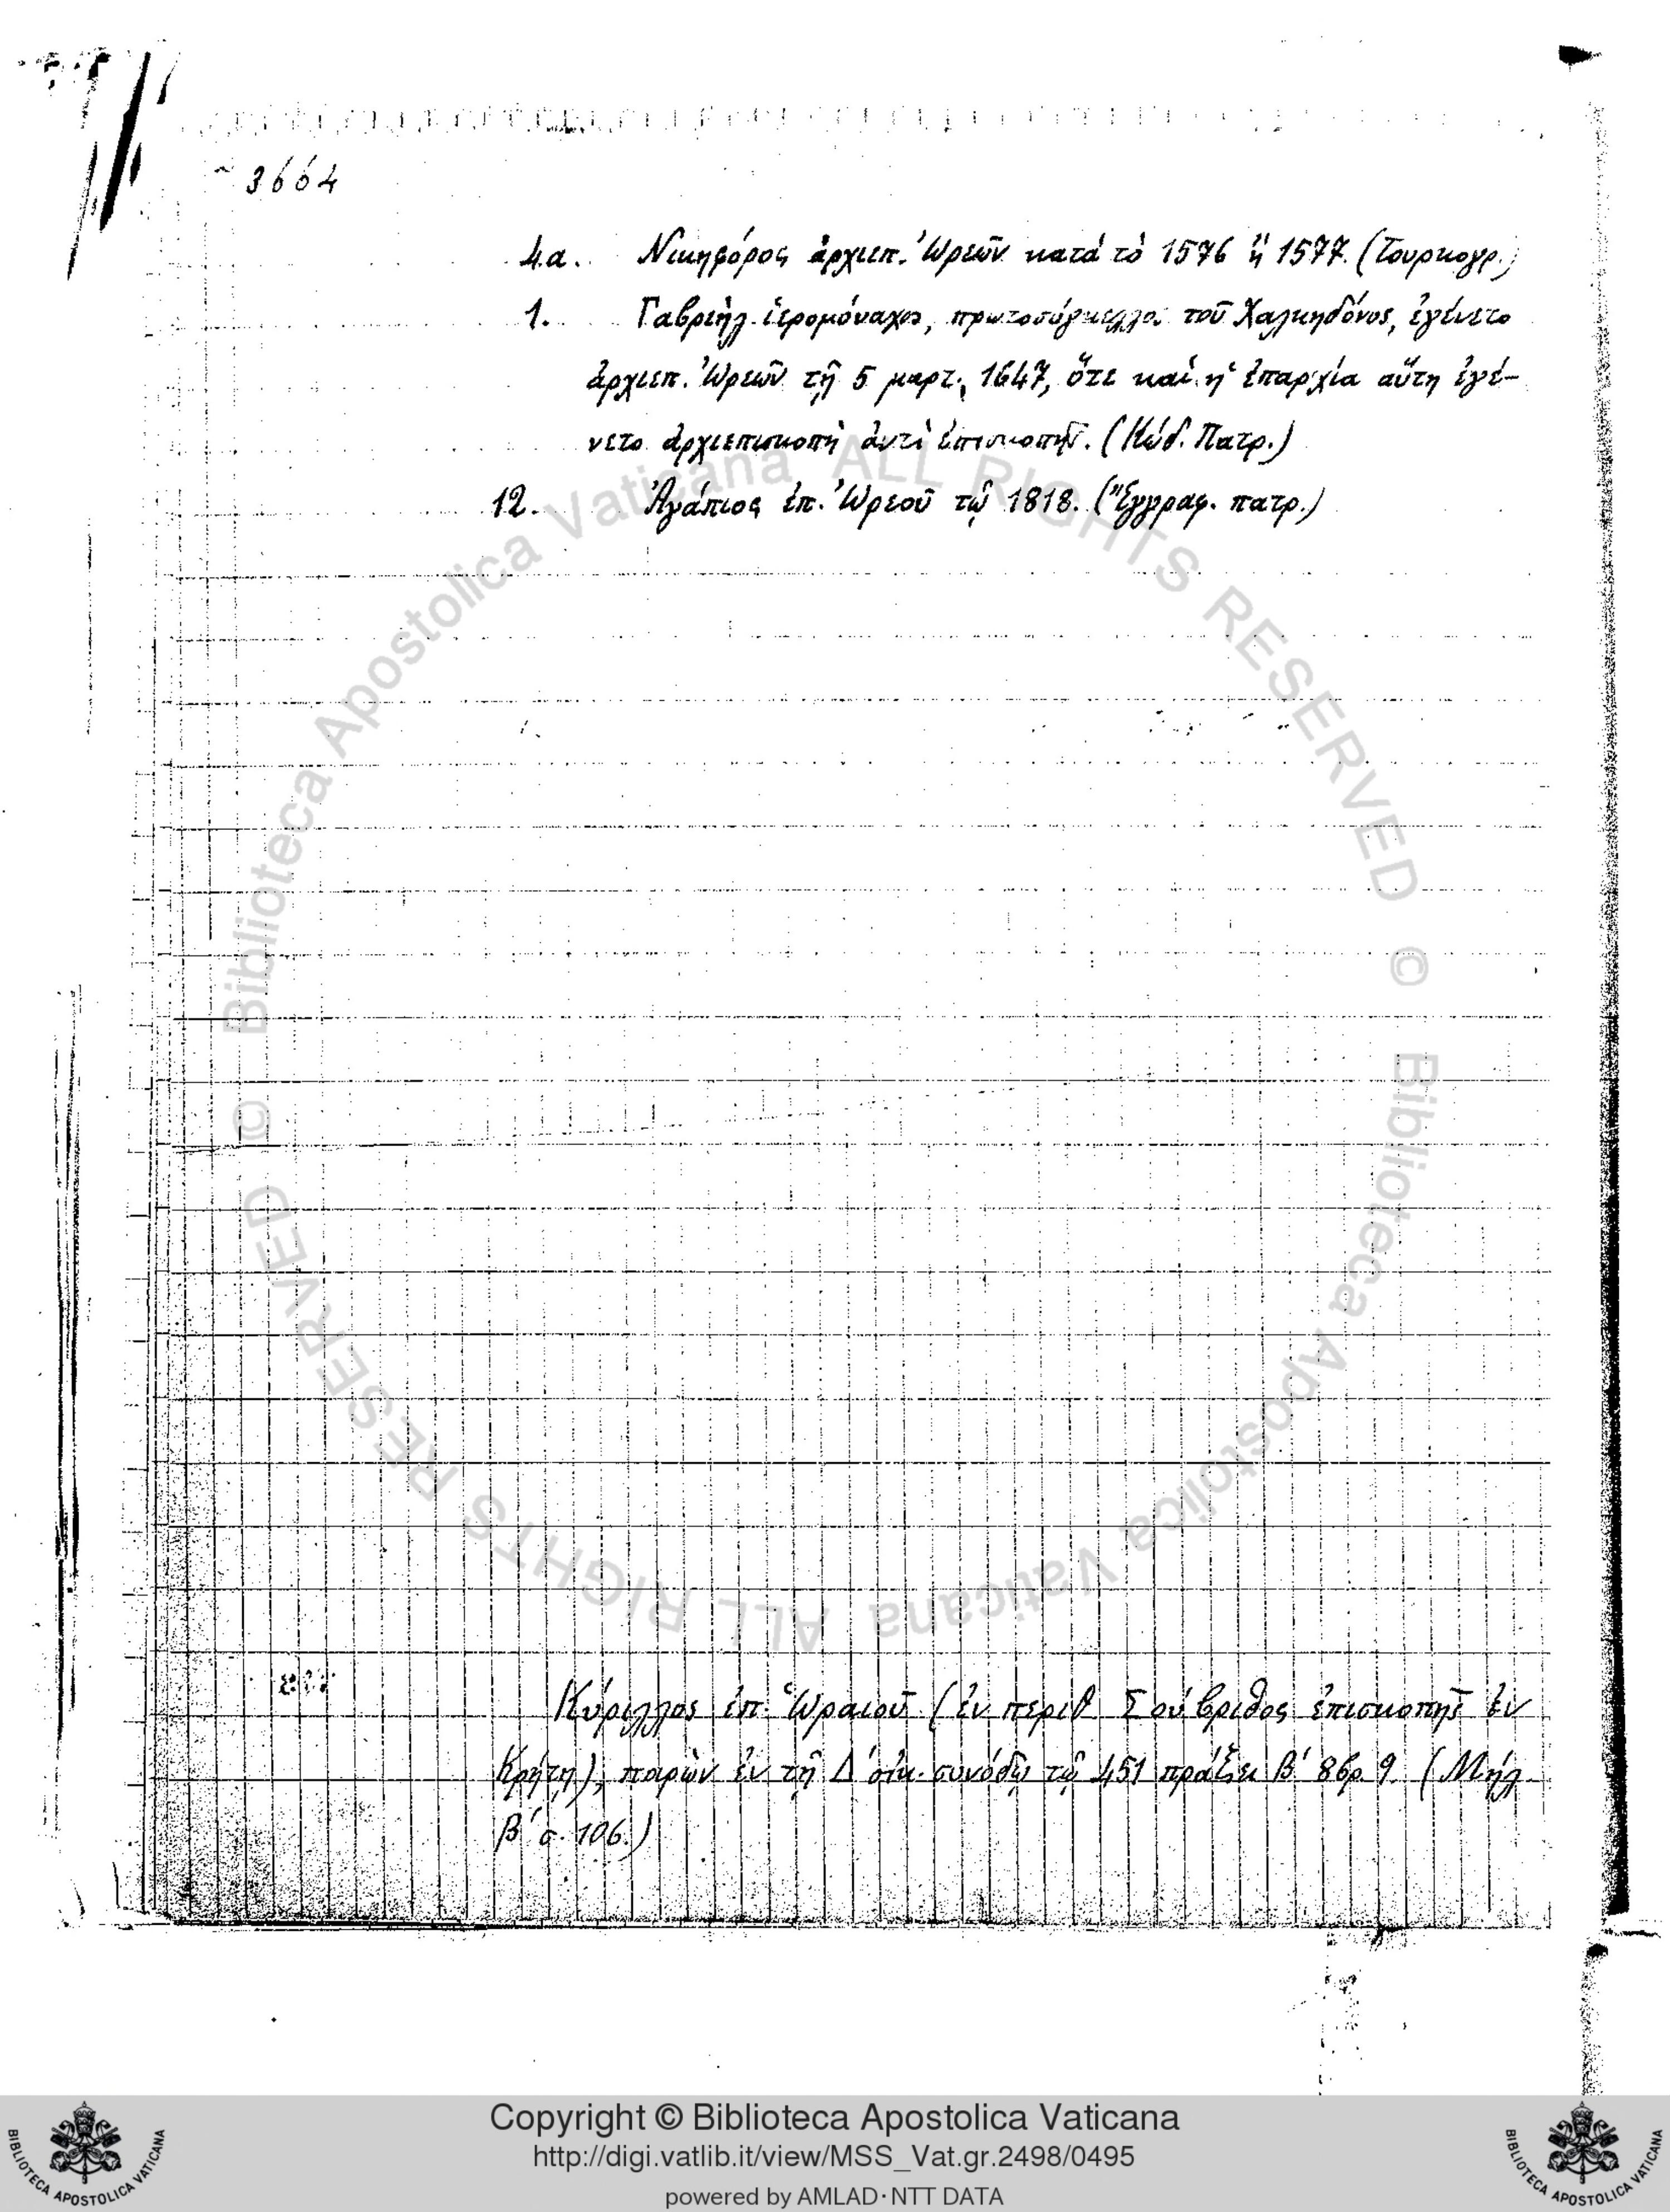 3664
4.α. Νικηφόρος ἀρχιεπ. Ὠρεῶν κατὰ τὸ 1576 ἢ 1577. (Τουρκογρ.)
1. Γαβριὴλ ἱερομόναχος, πρωτοσύγκελλος τοῦ Χαλκηδόνος, ἐγένετο
ἀρχιεπ. Ὠρεῶν τῇ 5 μαρτ. 1647, ὅτε καὶ ἡ ἐπαρχία αὕτη ἐγέ-
νετο ἀρχιεπισκοπὴ ἀντὶ ἐπισκοπῆς. (Κώδ. Πατρ.)
12. Ἀγάπιος ἐπ. Ὠρεοῦ τῷ 1818. (Ἔγγραφ. πατρ.)
Κύριλλος ἐπ. Ὡραιοῦ (ἐν περιθ. Σούβριθος ἐπισκοπῆς ἐν
Κρήτῃ), παρὼν ἐν τῇ Δ΄ οἰκ. συνόδῳ τῷ 451 πράξει β΄ (Μήλ.
β΄ σ. 106.)
© Biblioteca Apostolica Vaticana ALL RIGHTS RESERVED © Biblioteca Apostolica Vaticana ALL RIGHTS RESERVED
BIBLIOTECA APOSTOLICA VATICANA
Copyright © Biblioteca Apostolica Vaticana
http://digi.vatlib.it/view/MSS_Vat.gr.2498/0495
powered by AMLAD·NTT DATA
BIBLIOTECA APOSTOLICA VATICANA